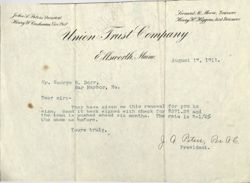 John A. Peters, President
Henry W. Cushman, Vice Prest
Leonard M. Moore, Treasurer
Henry H. Higgins, Asst Treasurer
Union Trust Company
Ellsworth, Maine
August 1st, 1911.
Mr. George B. Dorr,
Bar Harbor, Me.
Dear sir:-
They have given me this renewal for you to
sign, send it back signed with check for $271.25 and
the loan is pushed ahead six months. The rate is
the same as before.
Yours truly,
J. A. Peters
President.